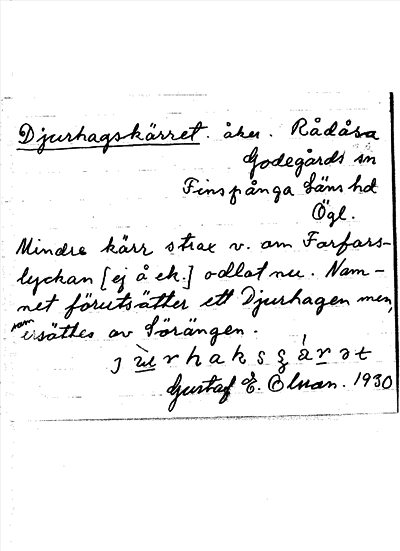 Djurhagskärret. åker. Rådåsa
Godegårds sn
Finspånga Läns hd
Ögl.
Mindre kärr strax v. om Farfars-
lyckan [ej å ek.] odlat nu. Nam-
net förutsätter ett Djurhagen men,
som ersättes av Sörängen.
Gustaf E. Olsson. 1930